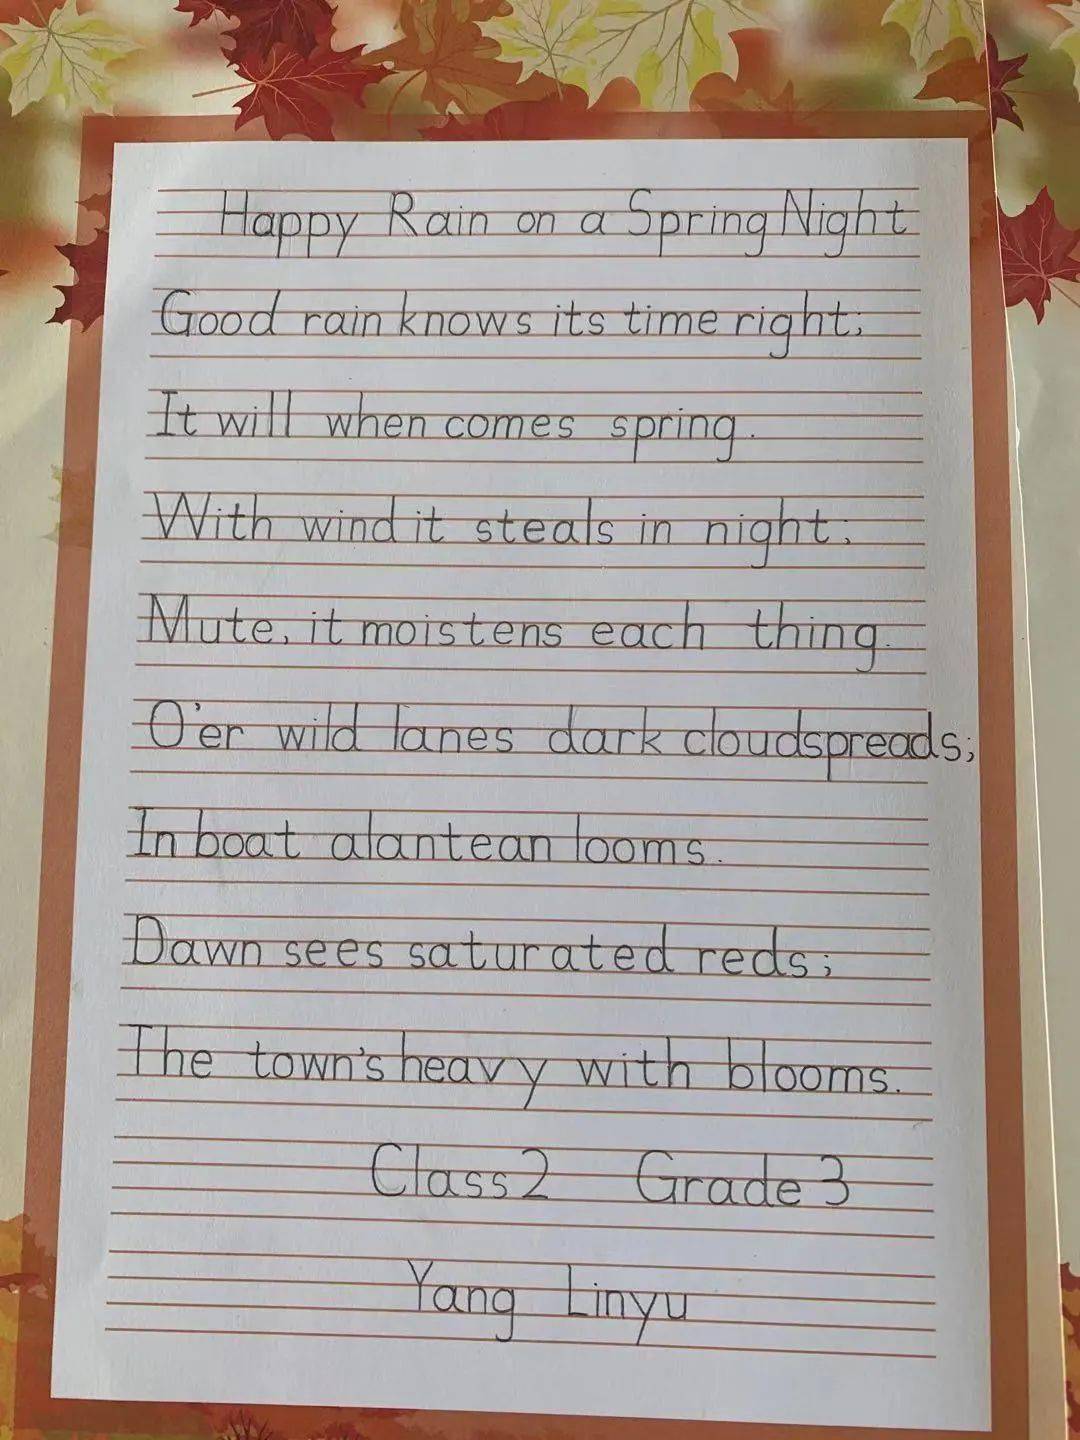 Happy Rain on a Spring Night
Good rain knows its time right;
It will when comes spring.
With wind it steals in night;
Mute, it moistens each thing.
O'er wild lanes dark cloudspreads;
In boat alantean looms.
Dawn sees saturated reds;
The town's heavy with blooms.
Class 2 Grade 3
Yang Linyu